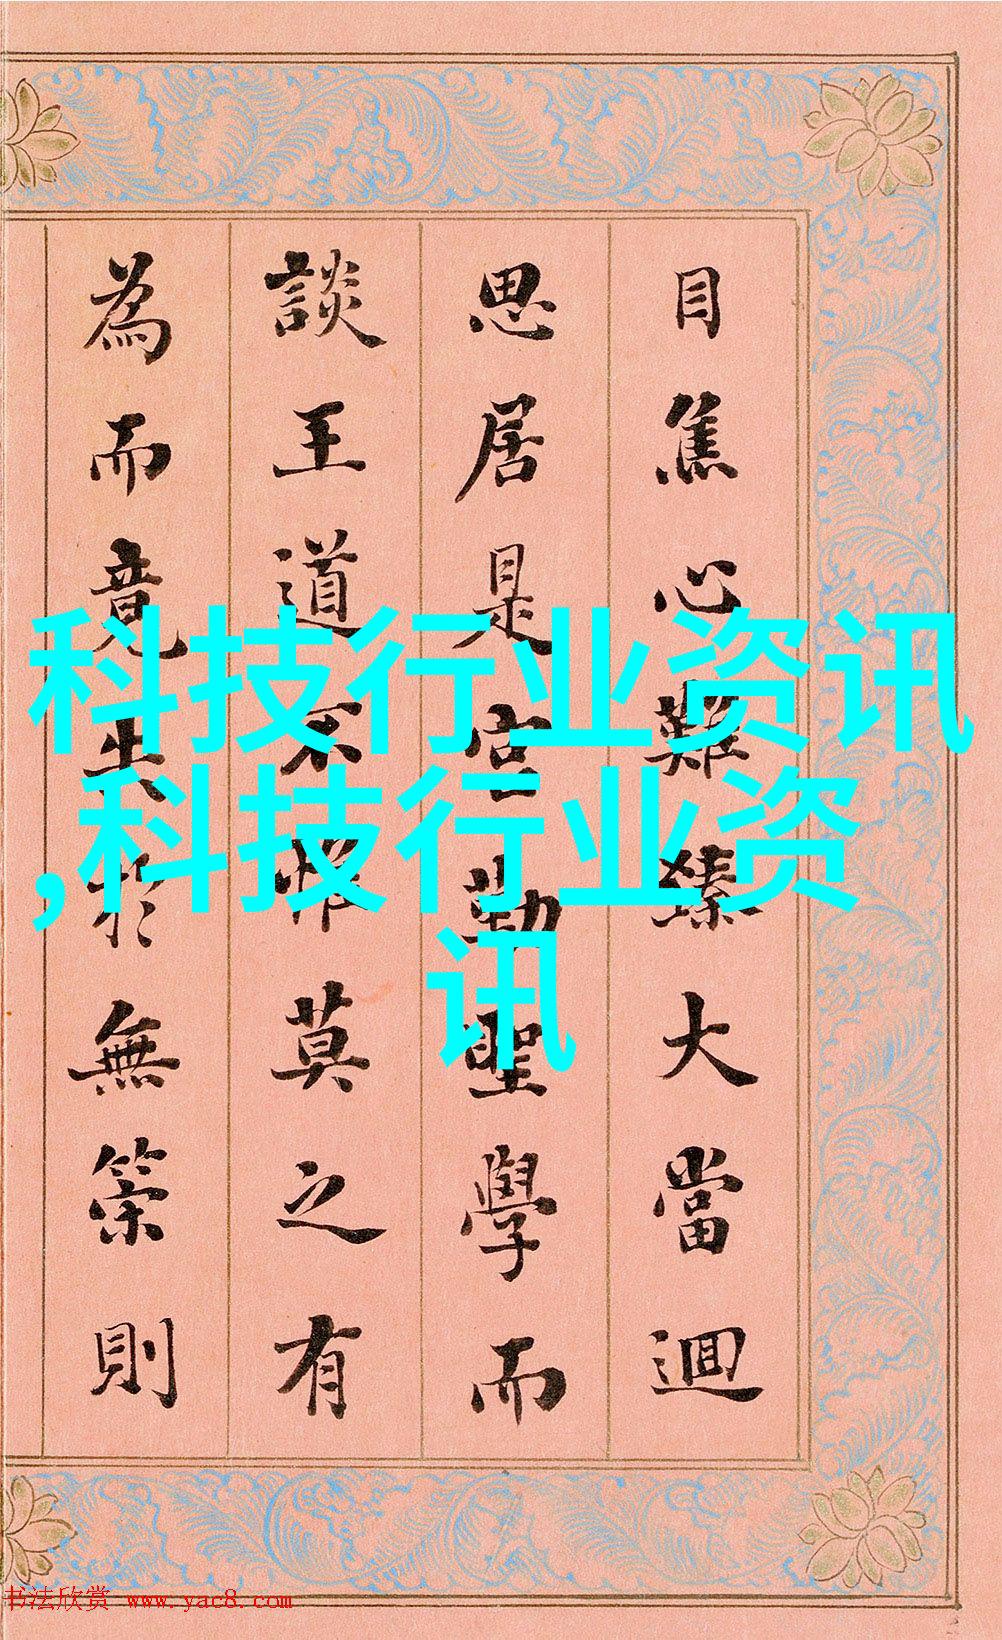 目焦心難臻大當迴
思居是勤聖學而
談王道不惟莫之有
為而竟出於無策則
科技行业资讯
,科技行业资
讯
书法欣赏 www.yac8.com